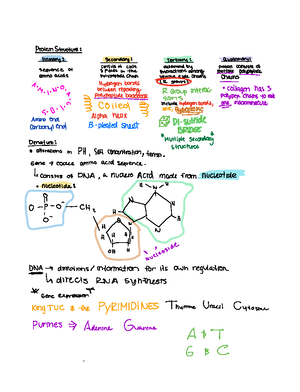 Protein Structure:
Primary:
sequence of
amino acids
Amino End
Carboxyl End
Secondary:
consists of coils
& folds in the
Polypeptide chain
Hydrogen bonds
between repeating
Polypeptide backbone
Coiled
Alpha helix
B-pleated sheet
Tertiary:
determined by
interactions among
R groups
R Group Interac-
tions
include hydrogen bonds,
Disulfide
BRIDGE
*Multiple secondary
structures
Quaternary:
protein consists of
multiple polypeptide
chains
*collagen has 3
Polypep. chains to make
one macromolecule
Denature:
* alterations in PH, Salt concentration, temp.
Gene → codes amino acid sequence.
↳ consists of DNA, a nucleic Acid made from nucleotide
* nucleotide:
O⁻ P O⁻ O CH₂ N N N N O
nucleoside
DNA → directions/information for its own regulation
↳ directs RNA synthesis
* Gene expression
King TUC is the PYRIMIDINES Thymine Uracil Cytosine
Purines → Adenine Guanine
A & T
G & C